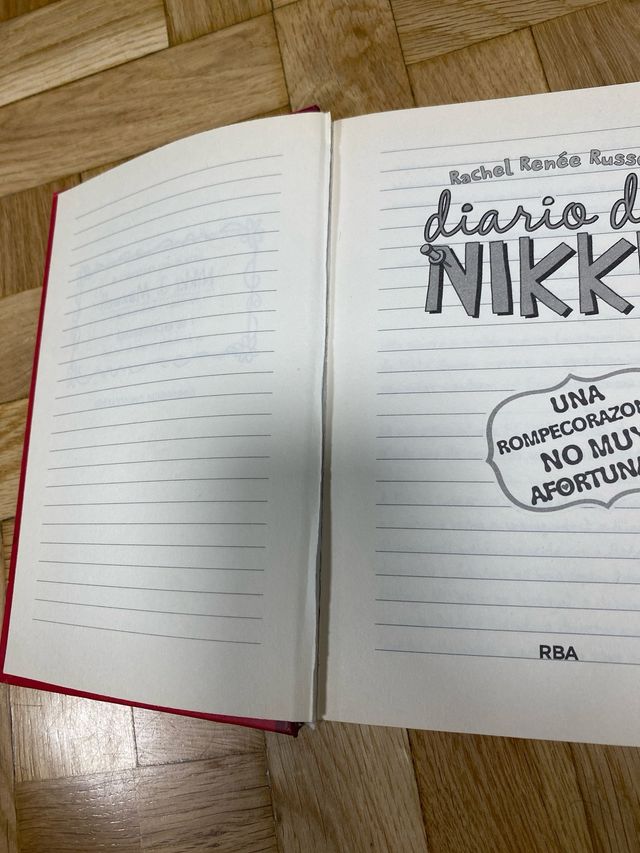 Rachel Renée Russe
diario d
NIKK
UNA
ROMPECORAZON
NO MUY
AFORTUNA
RBA